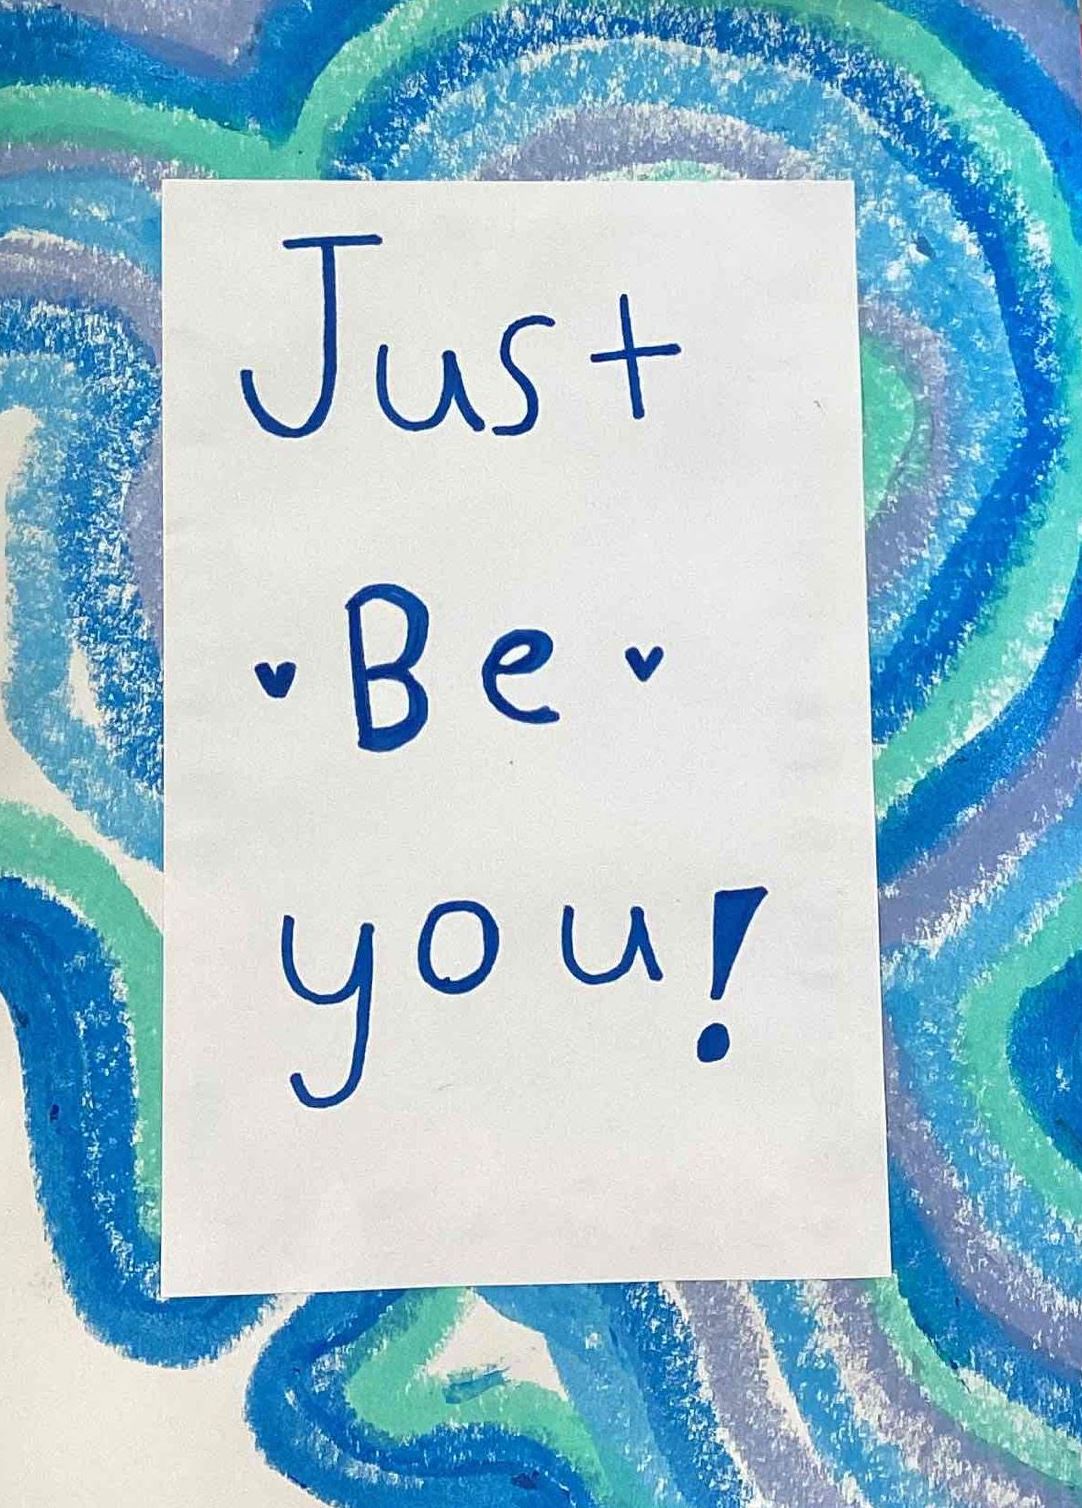 Just
♥ Be ♥
you!